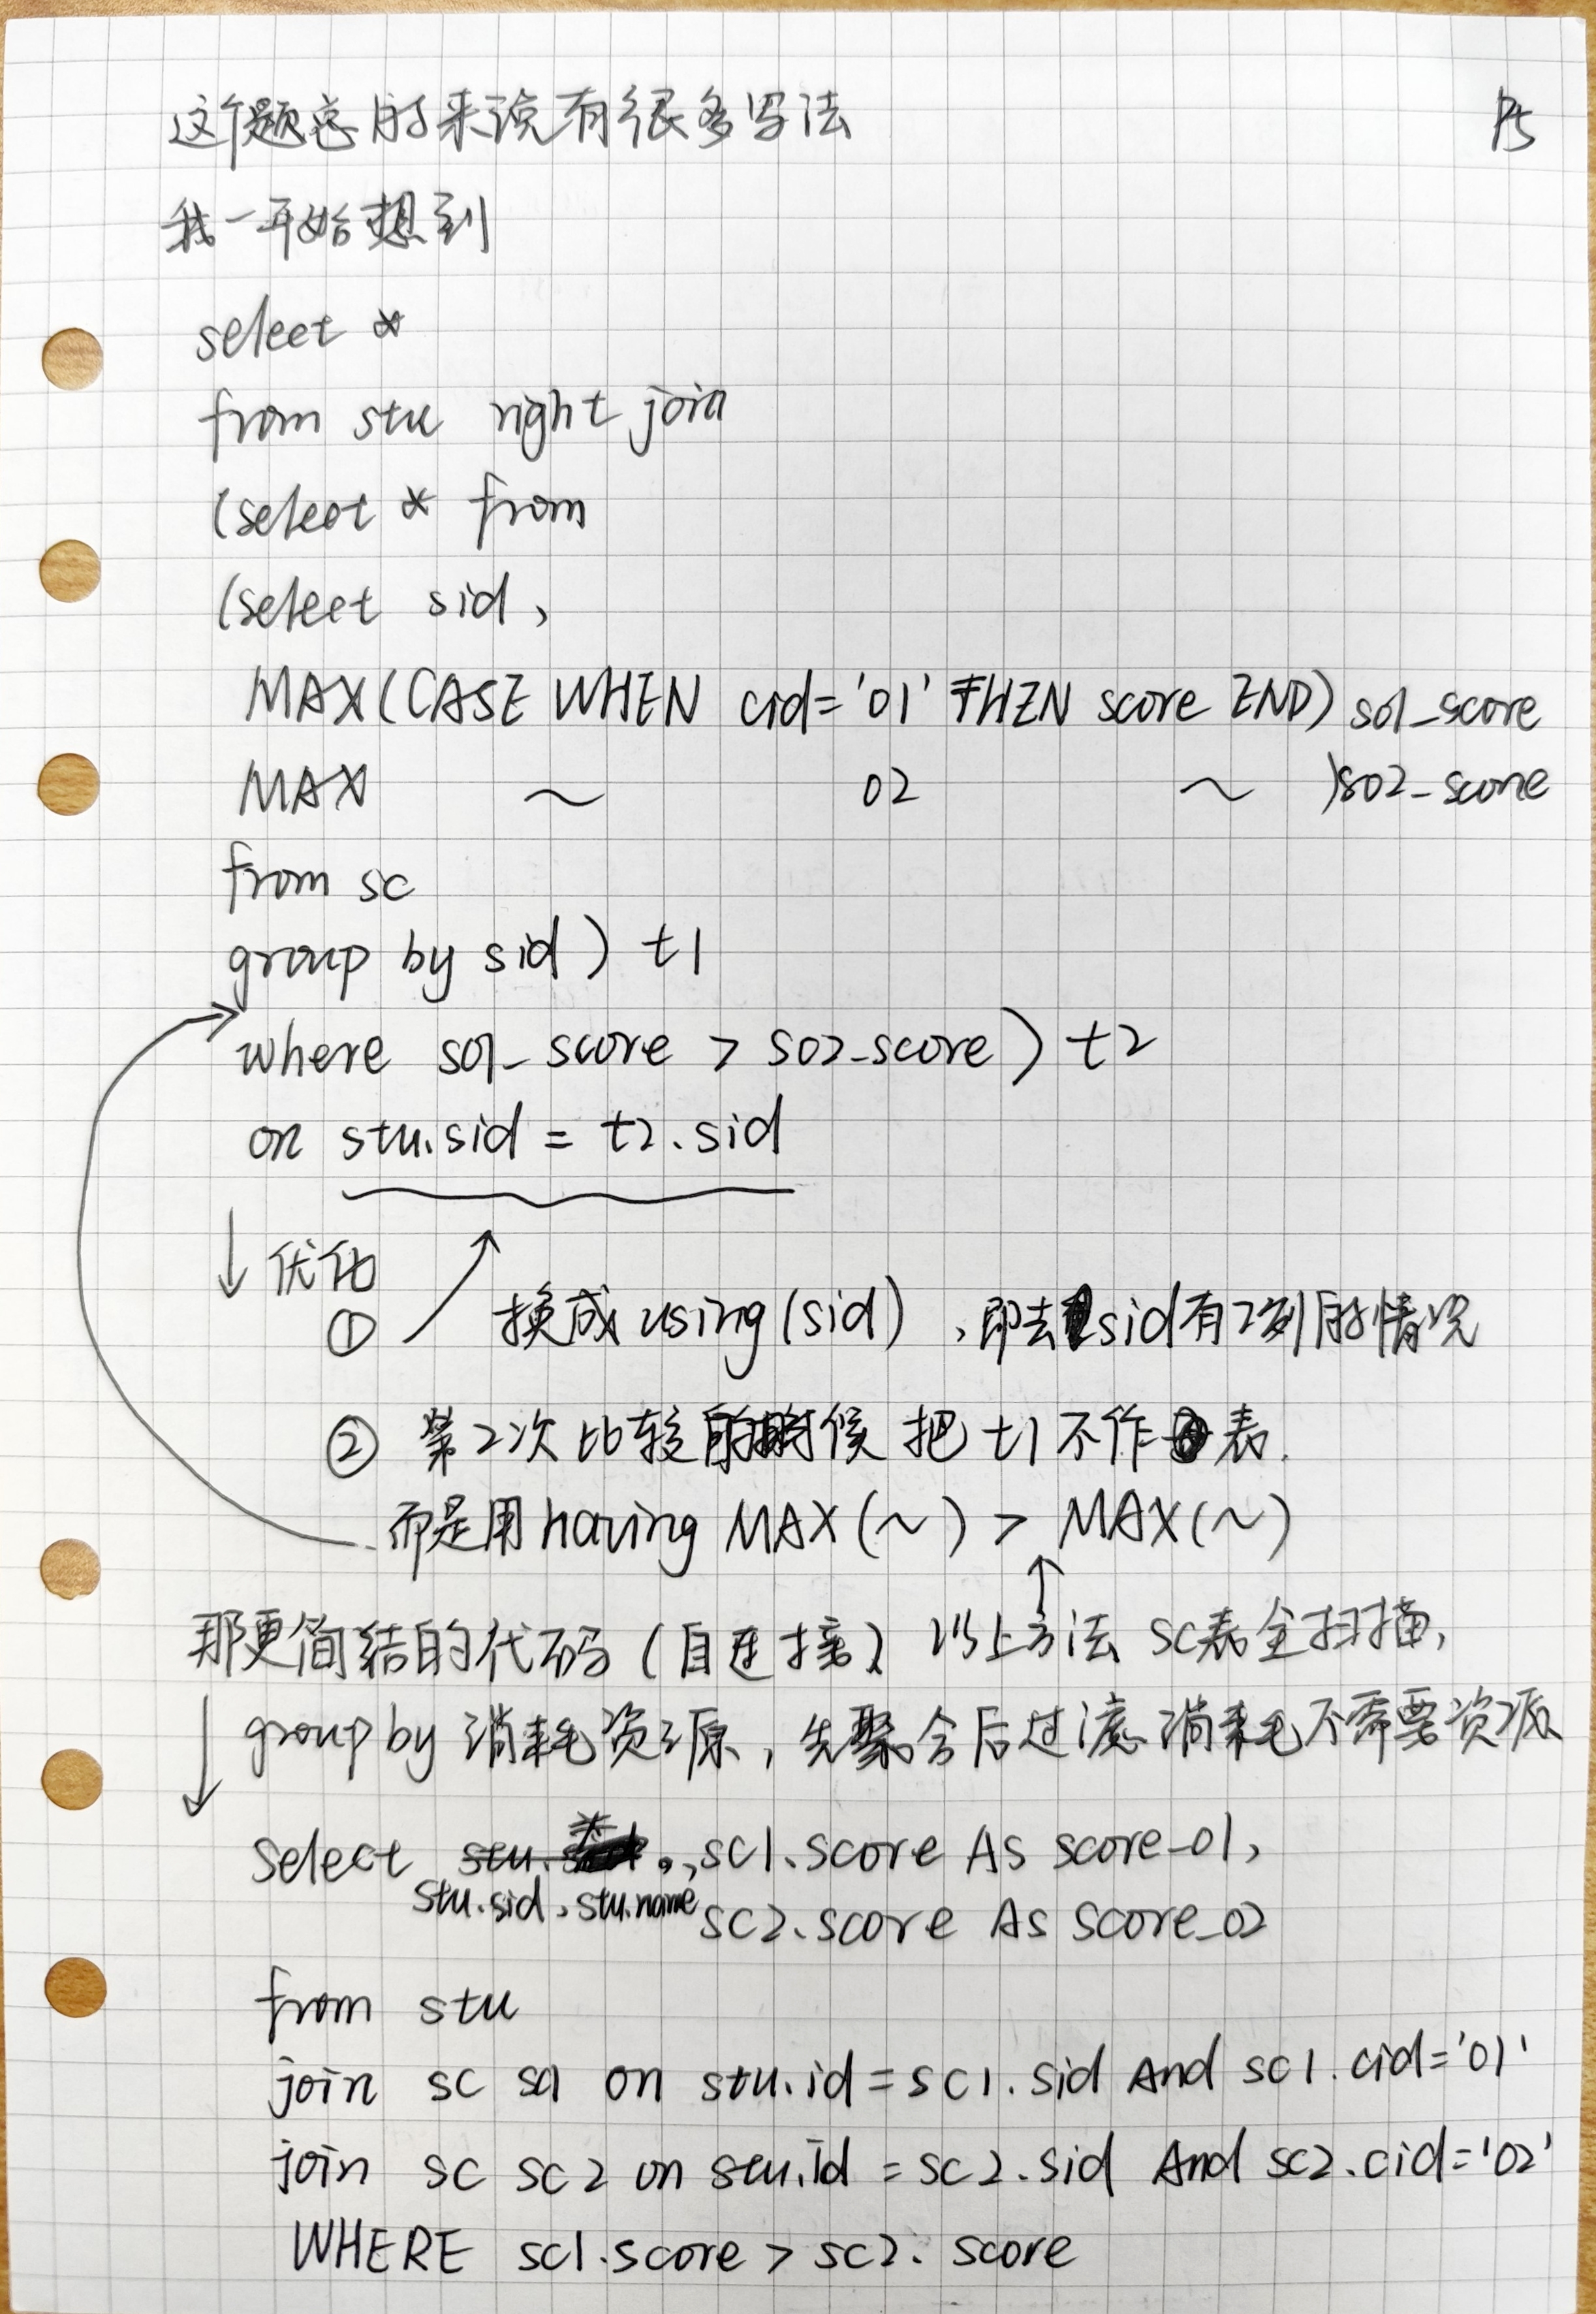 这个题总的来说有很多写法
P5
我一开始想到
select *
from stu right join
(select * from
(select sid,
MAX(CASE WHEN cid='01' THEN score END) s01_score
MAX ~ 02 ~ )s02_score
from sc
group by sid) t1
where s01_score > s02_score) t2
on stu.sid = t2.sid
↓ 优化
① 换成 using(sid), 即去sid有2列的情况
② 第2次比较的时候 把 t1 不作表.
而是用 having MAX(~) > MAX(~)
那更简结的代码(自连接) 以上方法 sc表全扫描,
group by 消耗资源, 先聚合后过滤消耗不需要资源
select stu.sid, stu.name, sc1.score As score_01,
sc2.score As score_02
from stu
join sc sc1 on stu.id = sc1.sid And sc1.cid='01'
join sc sc2 on stu.id = sc2.sid And sc2.cid='02'
WHERE sc1.score > sc2.score